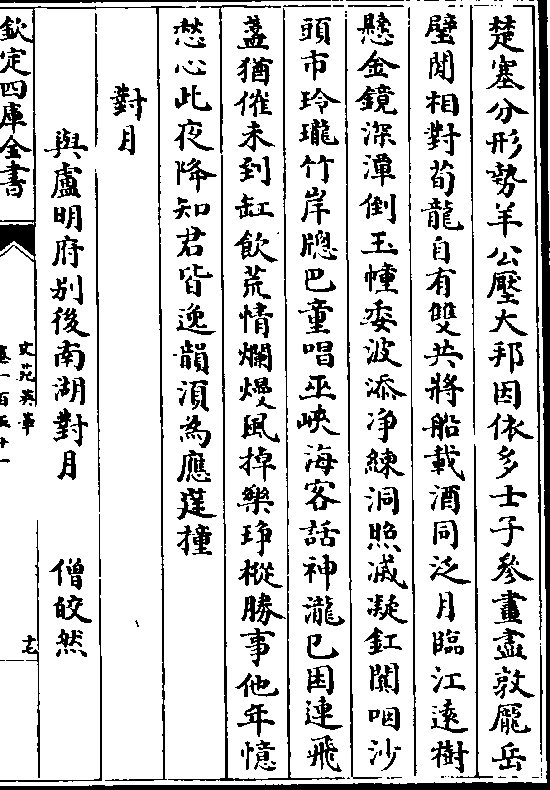 楚塞分形勢羊公壓大邦因依多士子參畫盡敦厖岳
壁閒相對荀龍自有雙共將船載酒同泛月臨江遠樹
懸金鏡深潭倒玉幢委波添净練洞照滅凝釭闐咽沙
頭市玲瓏竹岸牕巴童唱巫峽海客話神瀧已困連飛
盞猶催未到缸飲荒情爛熳風掉樂琤樅勝事他年憶
愁心此夜降知君皆逸韻須為應莛撞
對月
與盧明府别後南湖對月 僧皎然
欽定四庫全書
文苑英華
卷一百五十一
十七